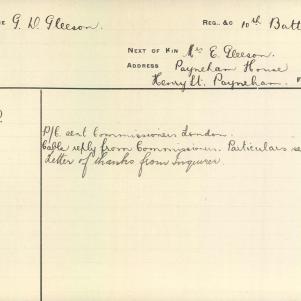 G. D. Gleeson. REG. &C 10th Batt
NEXT OF KIN Mrs E. Gleeson.
ADDRESS Payneham House
Henry St. Payneham.
P/C sent Commissioners London.
Cable reply from Commissioner. Particulars se
Letter of thanks from Inquirer.